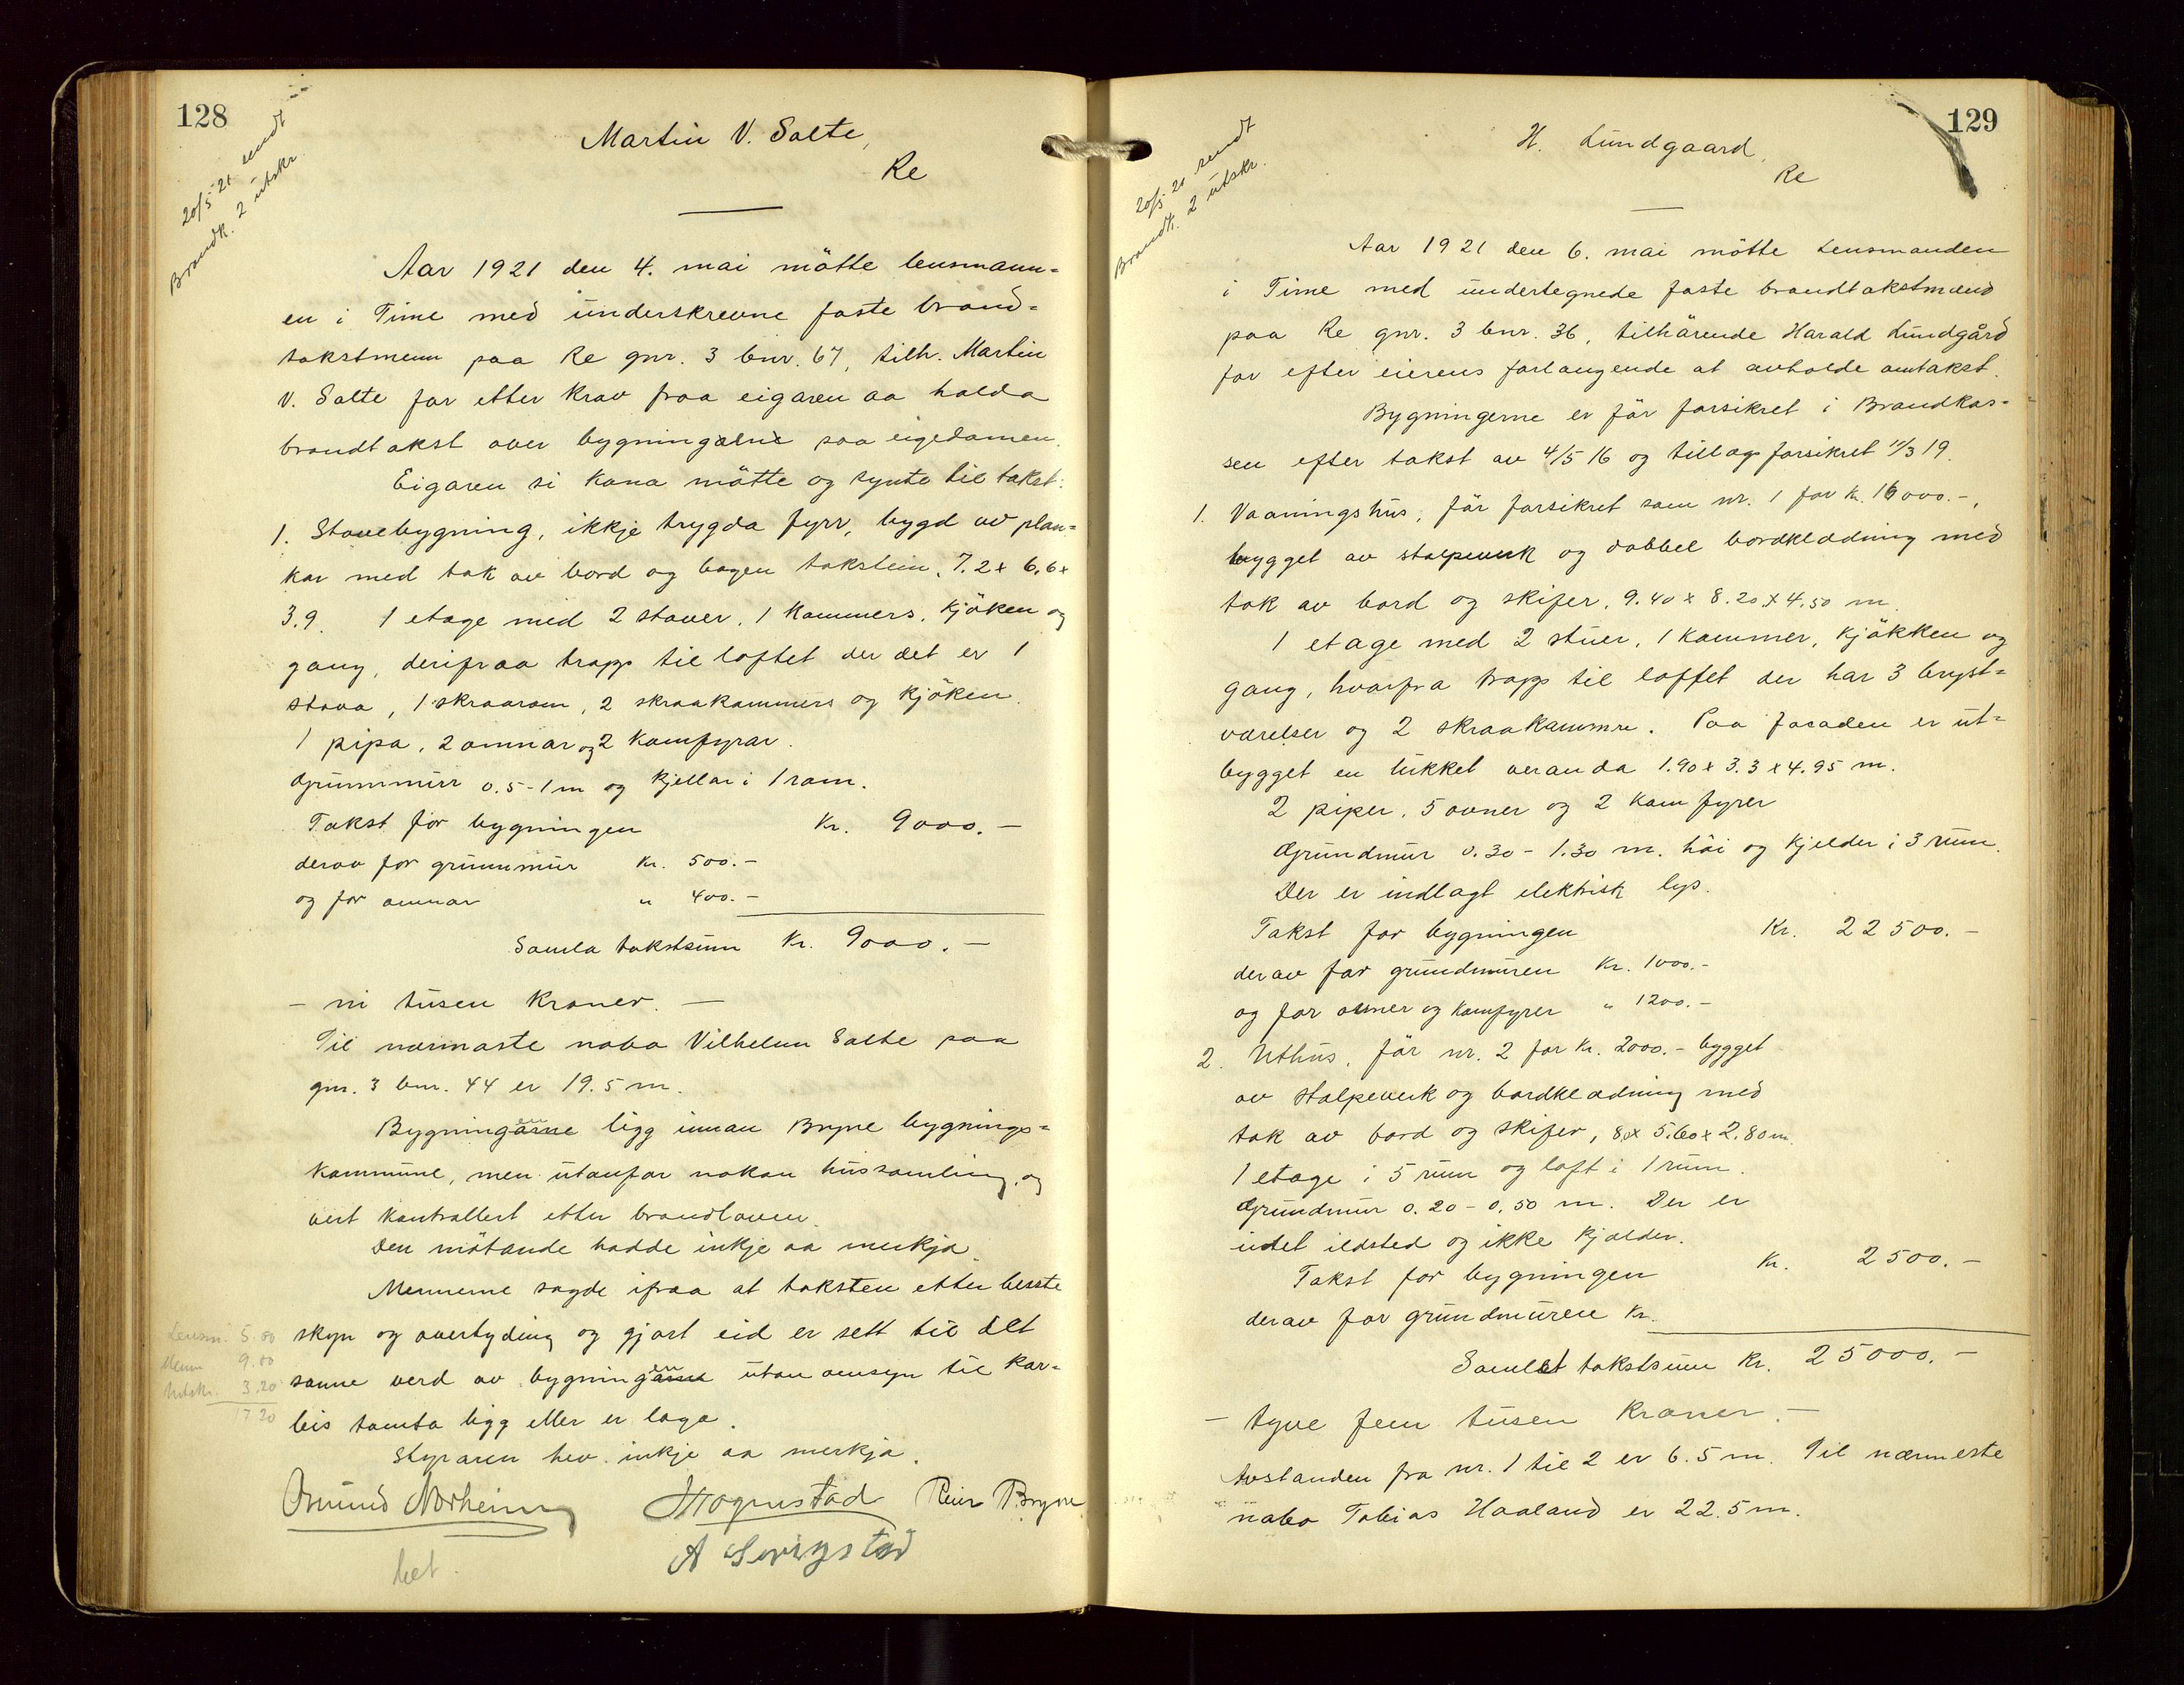 128
20/5 21 sendt
Brandk. 2 utskr.
Martin V. Salte,
Re
Aar 1921 den 4. mai mötte lensmann=
en i Time med underskrevne faste brand=
takstmenn paa Re gnr. 3 bnr. 67, tilh. Martin
V. Salte for etter krav fraa eigaren aa halda
brandtakst over bygningarne paa eigedomen.
Eigaren si kona mötte og synte til takst:
1. Stovebygning, ikkje trygda fyrr, bygd av plan=
kar med tak av bord og bogen takstein, 7.2 x 6.6 x
3.9. 1 etage med 2 stover, 1 kammers, kjöken og
gang, derifraa trapp til loftet der det er 1
stova, 1 skraarom, 2 skraakammers og kjöken.
1 pipa, 2 omnar og 2 komfyrar.
Grunnmur 0.5 - 1 m og kjellar i 1 rom.
Takst for bygningen Kr. 9000. -
derav for grunnmur Kr. 500. -
og for omnar " 400. -
Samla takstsum Kr. 9000. -
- ni tusen kroner. -
Til nærmaste nabo Vilhelm Salte paa
gnr. 3 bnr. 44 er 19.5 m.
Bygningen ligg innan Bryne bygnings=
kommune, men utanfor nokon hussamling, og
vert kontrollert etter brandloven.
Den mötande hadde inkje aa merkja.
Mennerne sagde ifraa at taksten etter beste
skyn og overtyding og gjort eid er sett til det
sanne verd av bygningen utan omsyn til kor=
leis tomta ligg eller er laga.
Styraren hev inkje aa merkja.
Lensm. 5.00
Menn 9.00
Utskr. 3.20
17 20
Osmund Norheim Hognstad Reier Bryne
A Serigstad
bet.
129
20/5 21 sendt
Brandk. 2 utskr.
H. Lundgaard,
Re
Aar 1921 den 6. mai mötte lensmanden
i Time med undertegnede faste brandtakstmænd
paa Re gnr. 3 bnr. 36, tilhörende Harald Lundgård
for efter eierens forlangende at avholde omtakst.
Bygningerne er för forsikret i Brandkas=
sen efter takst av 4/5 16 og tillægsforsikret 11/3 19.
1. Vaaningshus, för forsikret som nr. 1 for kr. 16000. -,
bygget av stolpeverk og dobbel bordklædning med
tak av bord og skifer, 9.40 x 8.20 x 4.50 m.
1 etage med 2 stuer, 1 kammer, kjökken og
gang, hvorfra trapp til loftet der har 3 bryst=
værelser og 2 skraakammre. Paa facaden er ut=
bygget en lukket veranda 1.90 x 3.3 x 4.95 m.
2 piper, 5 ovner og 2 komfyrer
Grundmur 0.30 - 1.30 m. höi og kjelder i 3 rum.
Der er indlagt elektrisk lys.
Takst for bygningen Kr. 22500. -
derav for grundmuren Kr. 1000. -
og for ovner og komfyrer " 1200. -
2. Uthus, för nr. 2 for Kr. 2000. - bygget
av stolpeverk og bordklædning med
tak av bord og skifer, 8 x 5.60 x 2.80 m.
1 etage i 5 rum og loft i 1 rum.
Grundmur 0.20 - 0.50 m. Der er
intet ildsted og ikke kjælder.
Takst for bygningen Kr. 2500. -
derav for grundmuren Kr.
Samlet takstsum Kr. 25000. -
- tyve fem tusen kroner. -
Avstanden fra nr. 1 til 2 er 6.5 m. Til nærmeste
nabo Tobias Haaland er 22.5 m.